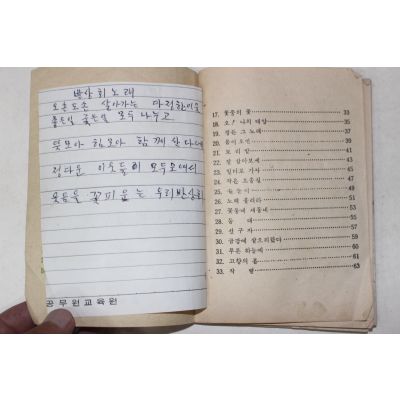 반상회노래
오손도손 살아가는 다정한이웃
좋은일 궂은일 모두 나누고
뜻모아 힘모아 함께 산다네
정다운 이웃들이 모두모여서
웃음을 꽃피우는 우리반상회
공무원교육원
17. 꽃중의 꽃 33
18. 오! 나의 태양 35
19. 정든 그 노래 37
20. 봄이 오면 39
21. 보리밭 41
22. 잘 살아보세 43
23. 일터로 가자 44
24. 작은 오솔길 45
25. 47
26. 노래 불러라 49
27. 꽃동네 새동네 51
28. 등대 53
29. 선구자 55
30. 금강에 살으리랏다 57
31. 푸른 하늘에 59
32. 고향의 봄 61
33. 작별 63